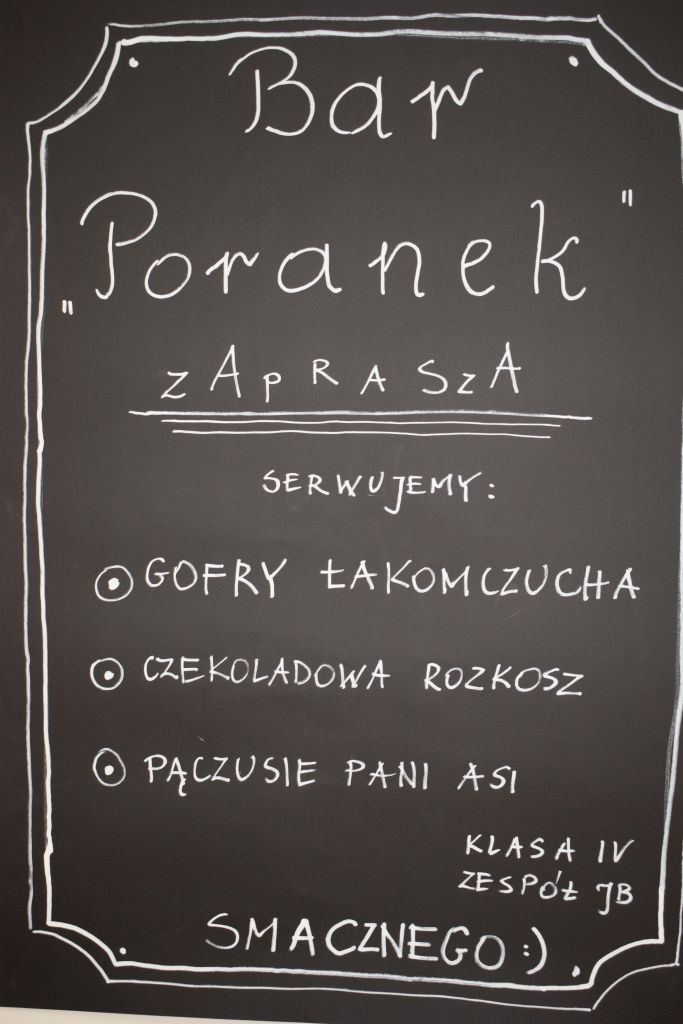 Bar
„Poranek"
zAPRASzA
SERWUJEMY:
GOFRY ŁAKOMCZUCHA
CZEKOLADOWA ROZKOSZ
PĄCZUSIE PANI ASI
KLASA IV
ZESPÓŁ JB
SMACZNEGO :)